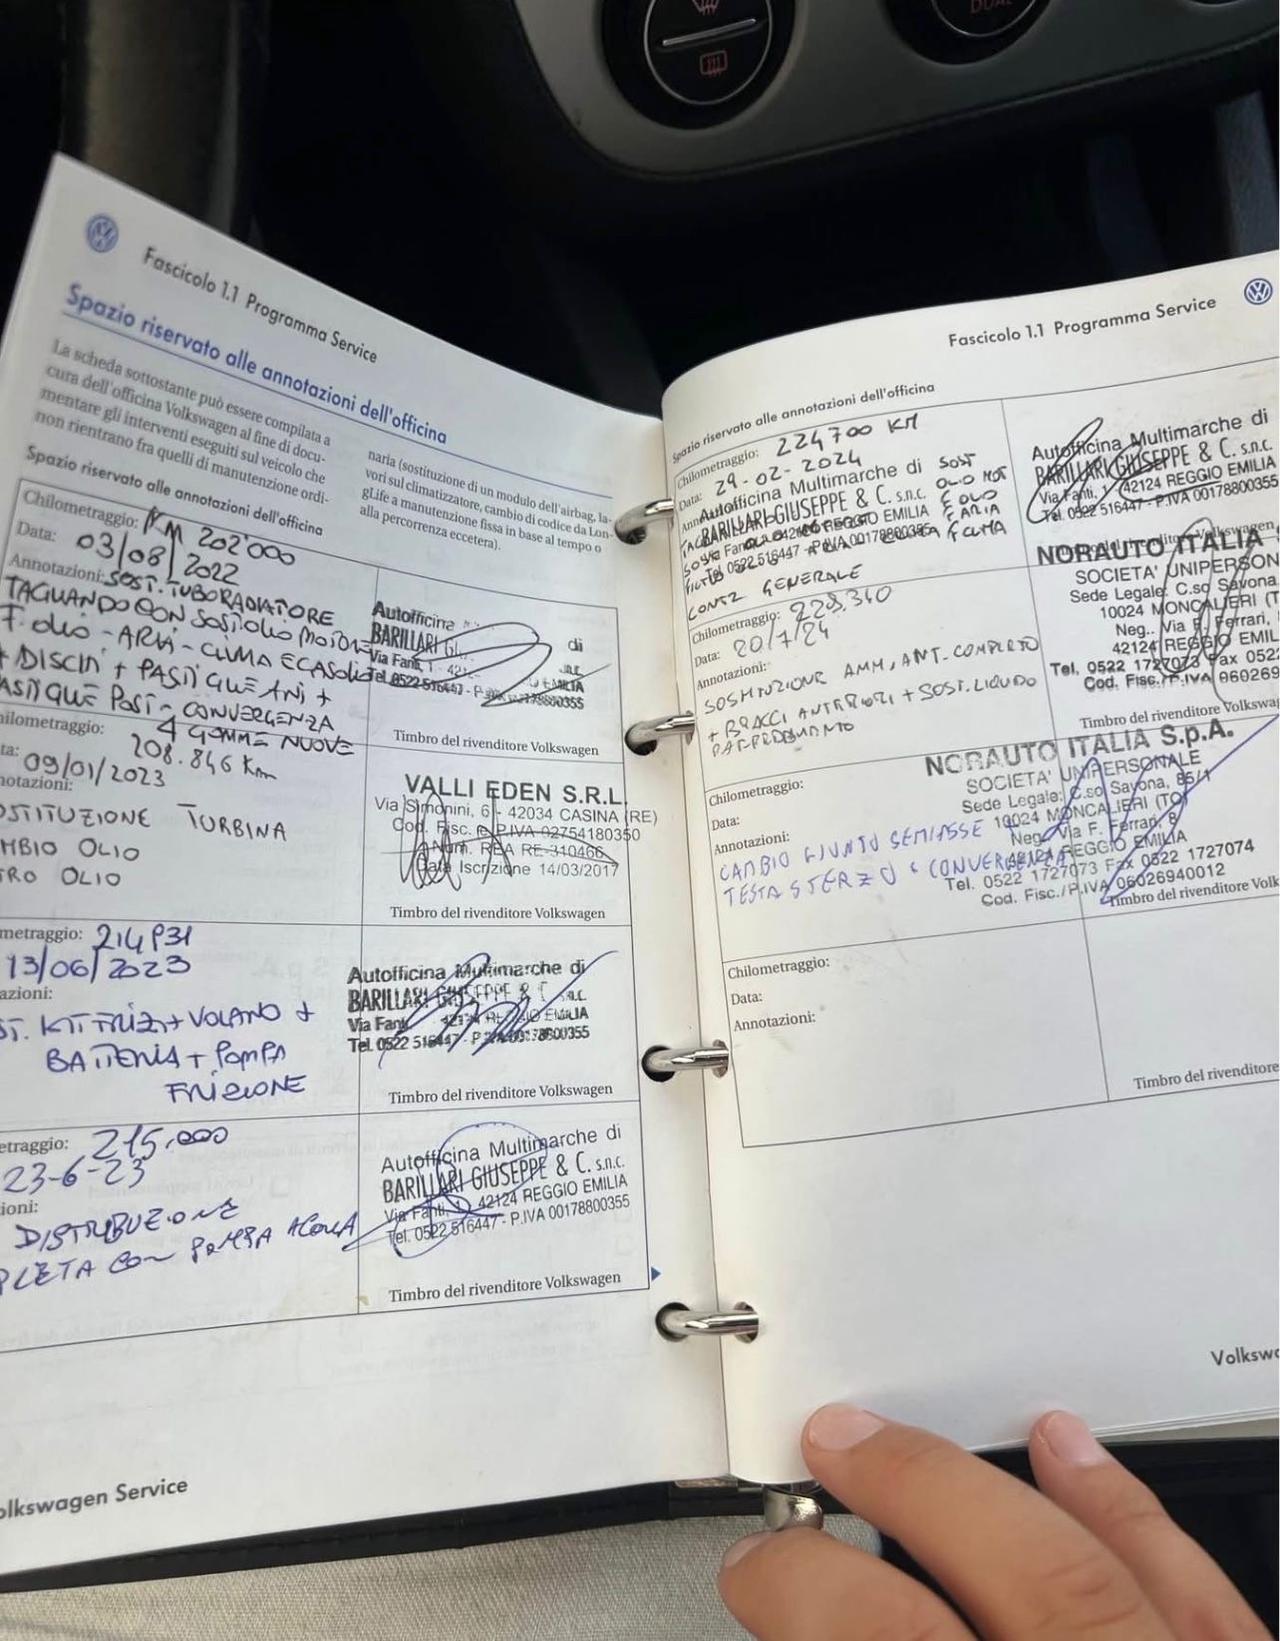 DUAL
Fascicolo 1.1 Programma Service
Spazio riservato alle annotazioni dell'officina
La scheda sottostante può essere compilata a
cura dell'officina Volkswagen al fine di docu-
mentare gli interventi eseguiti sul veicolo che
non rientrano fra quelli di manutenzione ordi-
naria (sostituzione di un modulo dell'airbag, la-
vori sul climatizzatore, cambio di codice da Lon-
gLife a manutenzione fissa in base al tempo o
alla percorrenza eccetera).
Spazio riservato alle annotazioni dell'officina
Chilometraggio: KM 202'000
Data: 03/08/2022
Annotazioni: SOST. TUBO RADIATORE
TAGLIANDO CON SOST OLIO MOTORE
F. OLIO - ARIA - CLIMA E GASOLIO
+ DISCHI + PASTIGLIE ANT +
PASTIGLIE POST - CONVERGENZA
4 GOMME NUOVE
Autofficina di
BARILLARI
Via Fanti, 1 - 42
Tel. 0522 516447 - P.
Timbro del rivenditore Volkswagen
hilometraggio: 208.846 Km
ta: 09/01/2023
notazioni:
OSTITUZIONE TURBINA
MBIO OLIO
TRO OLIO
VALLI EDEN S.R.L.
Via Simonini, 6 - 42034 CASINA (RE)
Cod. Fisc. e P.IVA 02754180350
Num. REA RE-310466
Data Iscrizione 14/03/2017
Timbro del rivenditore Volkswagen
metraggio: 214931
13/06/2023
azioni:
ST. KIT FRIZ + VOLANO +
BATTERIA + POMPA
FRIZIONE
Autofficina Multimarche di
BARILLARI GIUSEPPE & C. s.n.c.
Via Fanti 42124 REGGIO EMILIA
Tel. 0522 516447 - P.IVA 00178800355
Timbro del rivenditore Volkswagen
etraggio: 215.000
23-6-23
ioni:
DISTRIBUZIONE
PLETA CON POMPA ACQUA
Autofficina Multimarche di
BARILLARI GIUSEPPE & C. s.n.c.
Via Fanti, 1 - 42124 REGGIO EMILIA
Tel. 0522 516447 - P.IVA 00178800355
Timbro del rivenditore Volkswagen
olkswagen Service
Fascicolo 1.1 Programma Service
Spazio riservato alle annotazioni dell'officina
Chilometraggio: 224700 KM
Data: 29-02-2024
Autofficina Multimarche di SOST
BARILLARI GIUSEPPE & C. s.n.c. OLIO MOT
Via Fanti 42124 REGGIO EMILIA
Tel. 0522 516447 - P.IVA 00178800355
CONTR GENERALE
Autofficina Multimarche di
BARILLARI GIUSEPPE & C. s.n.c.
Via Fanti, 1 - 42124 REGGIO EMILIA
Tel. 0522 516447 - P.IVA 00178800355
Chilometraggio: 228.340
Data: 20/7/24
Annotazioni:
SOSTITUZIONE AMM, ANT. COMPLETO
+ BRACCI ANTERIORI + SOST. LIQUIDO
RAFFREDDAMENTO
NORAUTO ITALIA
SOCIETA' UNIPERSON
Sede Legale: C.so Savona
10024 MONCALIERI (T
Neg.. Via F. Ferrari,
42124 REGGIO EMIL
Tel. 0522 1727073 Fax 0522
Cod. Fisc./P.IVA 060269
Timbro del rivenditore Volkswag
Chilometraggio:
Data:
Annotazioni:
CAMBIO GIUNTO SEMIASSE +
TESTA STERZO + CONVERGENZA
NORAUTO ITALIA S.p.A.
SOCIETA' UNIPERSONALE
Sede Legale: C.so Savona, 85/1
10024 MONCALIERI (TO)
Neg. Via F. Ferrari, 8
42124 REGGIO EMILIA
Tel. 0522 1727073 Fax 0522 1727074
Cod. Fisc./P.IVA 06026940012
Timbro del rivenditore Volk
Chilometraggio:
Data:
Annotazioni:
Timbro del rivenditore
Volksw